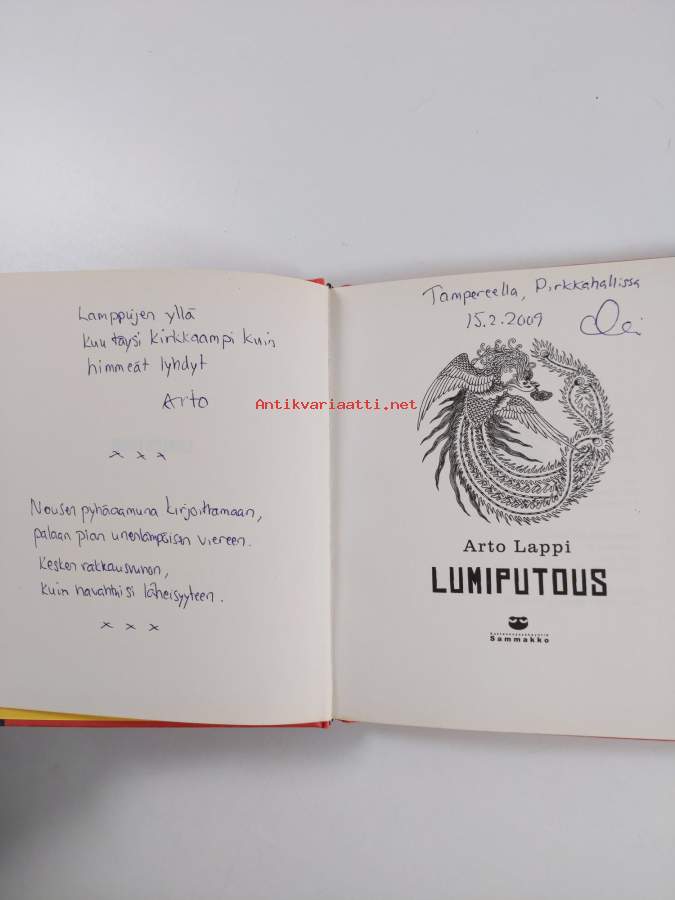 Lamppujen yllä
kuu täysi kirkkaampi kuin
himmeät lyhdyt
Arto
x x x
Nousen pyhäaamuna kirjoittamaan,
palaan pian unenlämpöisen viereen.
Kesken rakkausrunon,
kuin havahtuisi läheisyyteen.
x x x
Tampereella, Pirkkahallissa
15.2.2009
Antikvariaatti.net
Arto Lappi
LUMIPUTOUS
Sammakko